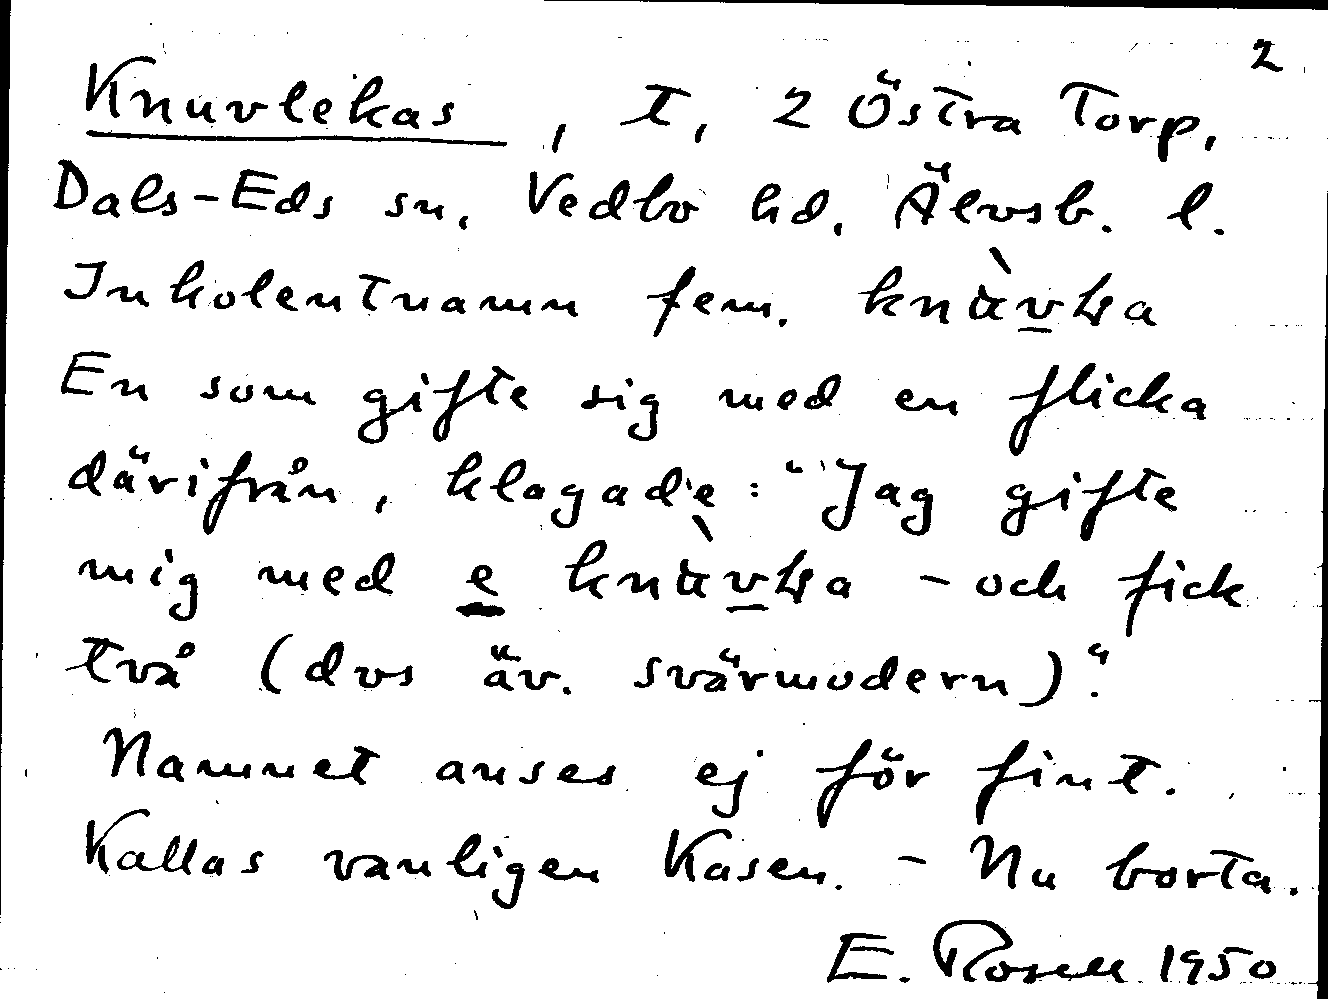 2
Knuvlekas, t, 2 Östra Torp,
Dals-Eds sn, Vedbo hd, Älvsb. l.
Inkolentnamn fem.
En som gifte sig med en flicka
därifrån, klagade: "Jag gifte
mig med e – och fick
två (dvs äv. svärmodern)".
Namnet anses ej för fint.
Kallas vanligen Kasen. – Nu borta.
E. Rosell 1950